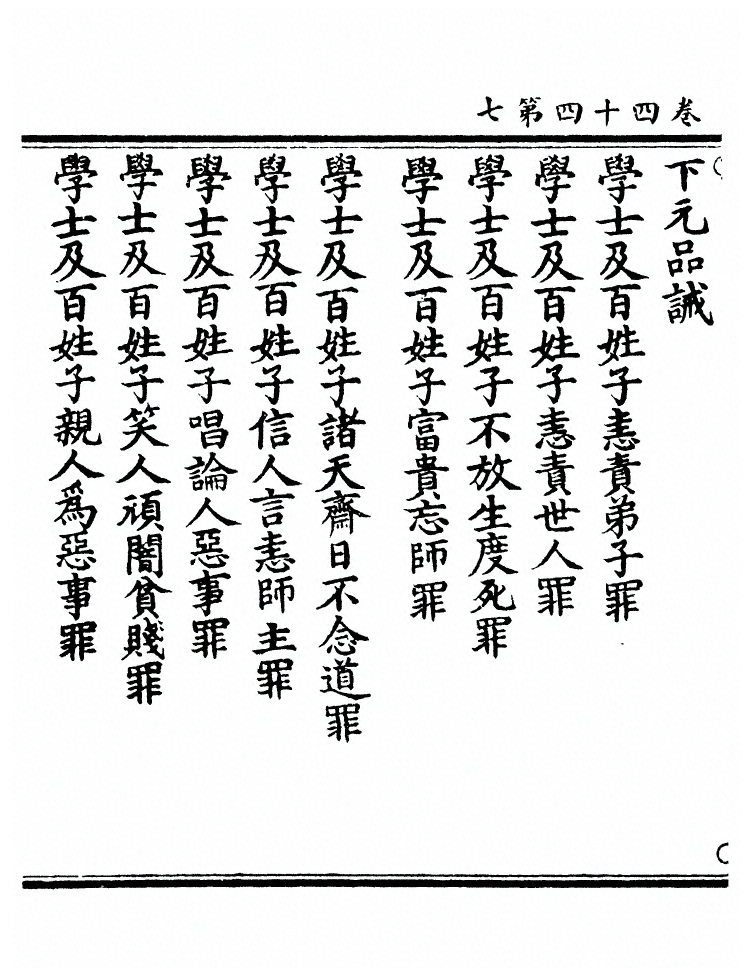 卷四十四第七
下元品誡
學士及百姓子恚責弟子罪
學士及百姓子恚責世人罪
學士及百姓子不放生度死罪
學士及百姓子富貴忘師罪
學士及百姓子諸天齋日不念道罪
學士及百姓子信人言恚師主罪
學士及百姓子唱論人惡事罪
學士及百姓子笑人頑闇貧賤罪
學士及百姓子親人爲惡事罪